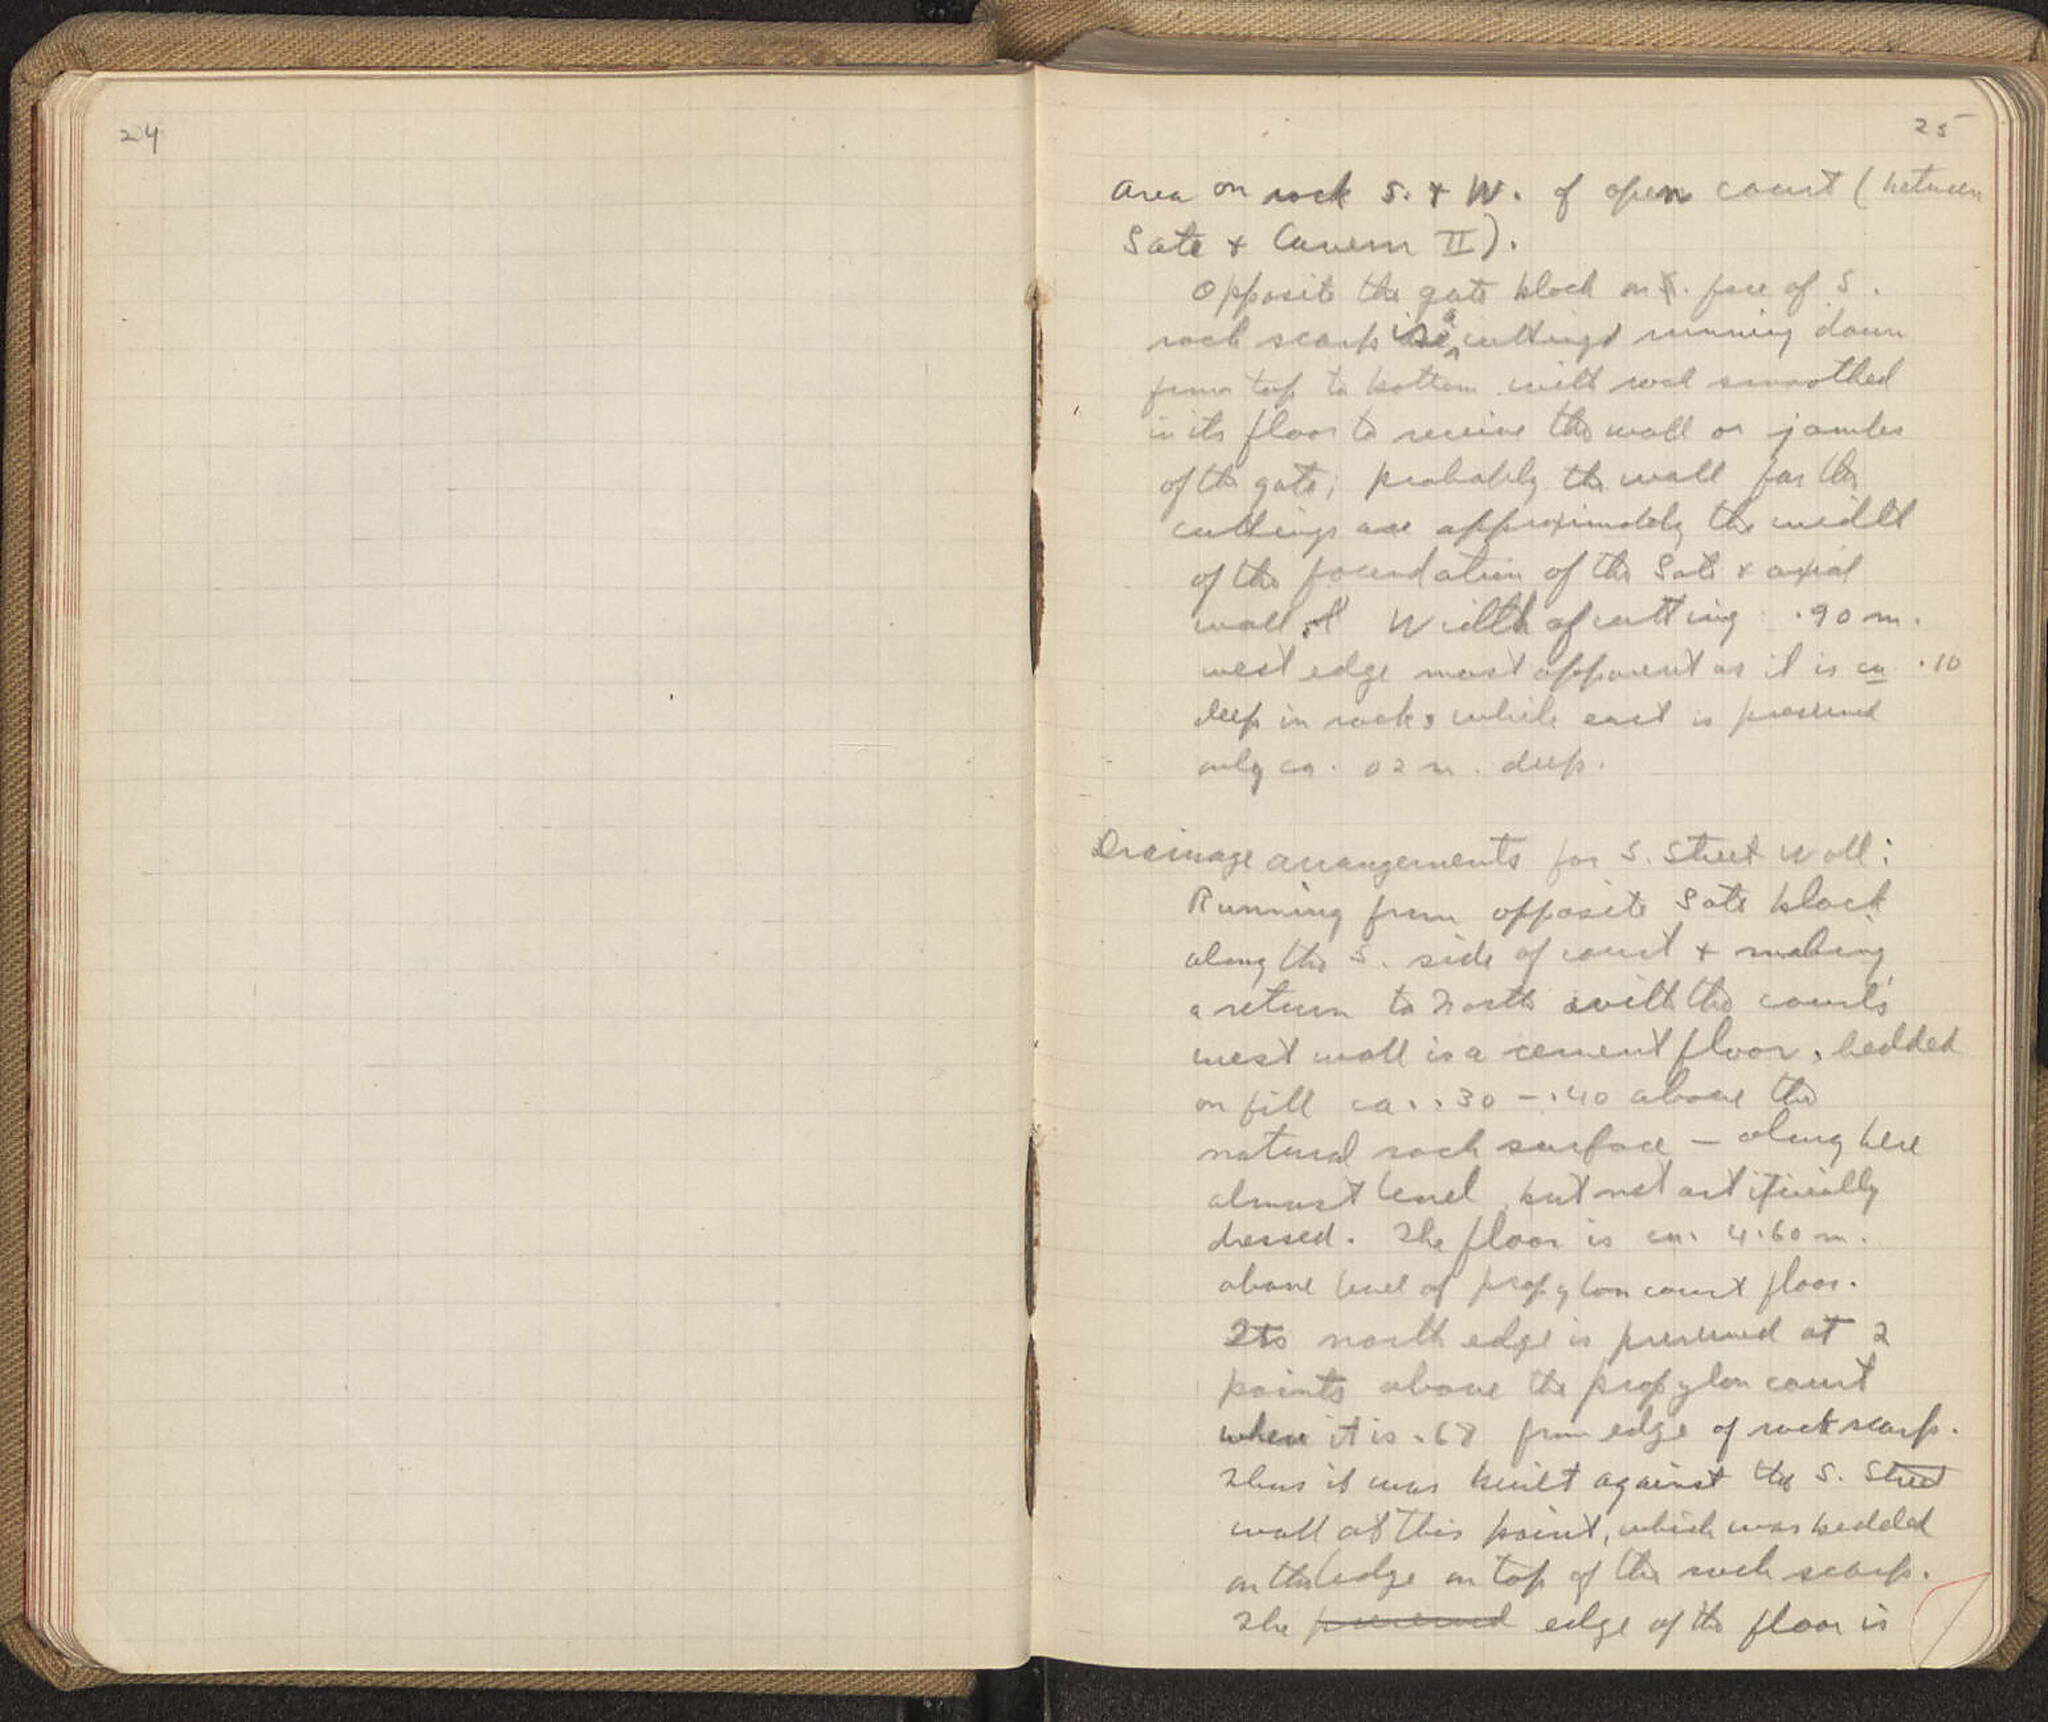 24
25
Area on rock S. + W. of open court (between
Gate + Cavern II).
Opposite the gate block on face of S.
rock scarp is a cutting running down
from top to bottom with rock smoothed
in its floor to receive the wall or jambs
of the gate; probably the wall for the
cuttings are approximately the width
of the foundation of the Gate & axial
wall. Width of cutting .90 m.
west edge most apparent as it is ca .10
deep in rock, while east is preserved
only ca. .02 m. deep.
Drainage arrangements for S. Street Wall:
Running from opposite Gate block
along the S. side of court + making
a return to North with the court's
west wall is a cement floor, bedded
on fill ca. .30 - .40 above the
natural rock surface — along here
almost level, but not artificially
dressed. The floor is ca. 4.60 m.
above level of propylon court floor.
Its north edge is preserved at 2
points above the propylon court
where it is .68 from edge of rock scarp.
Thus it was built against the S. Street
wall at this point, which was bedded
on the ledge on top of the rock scarp.
The preserved edge of the floor is